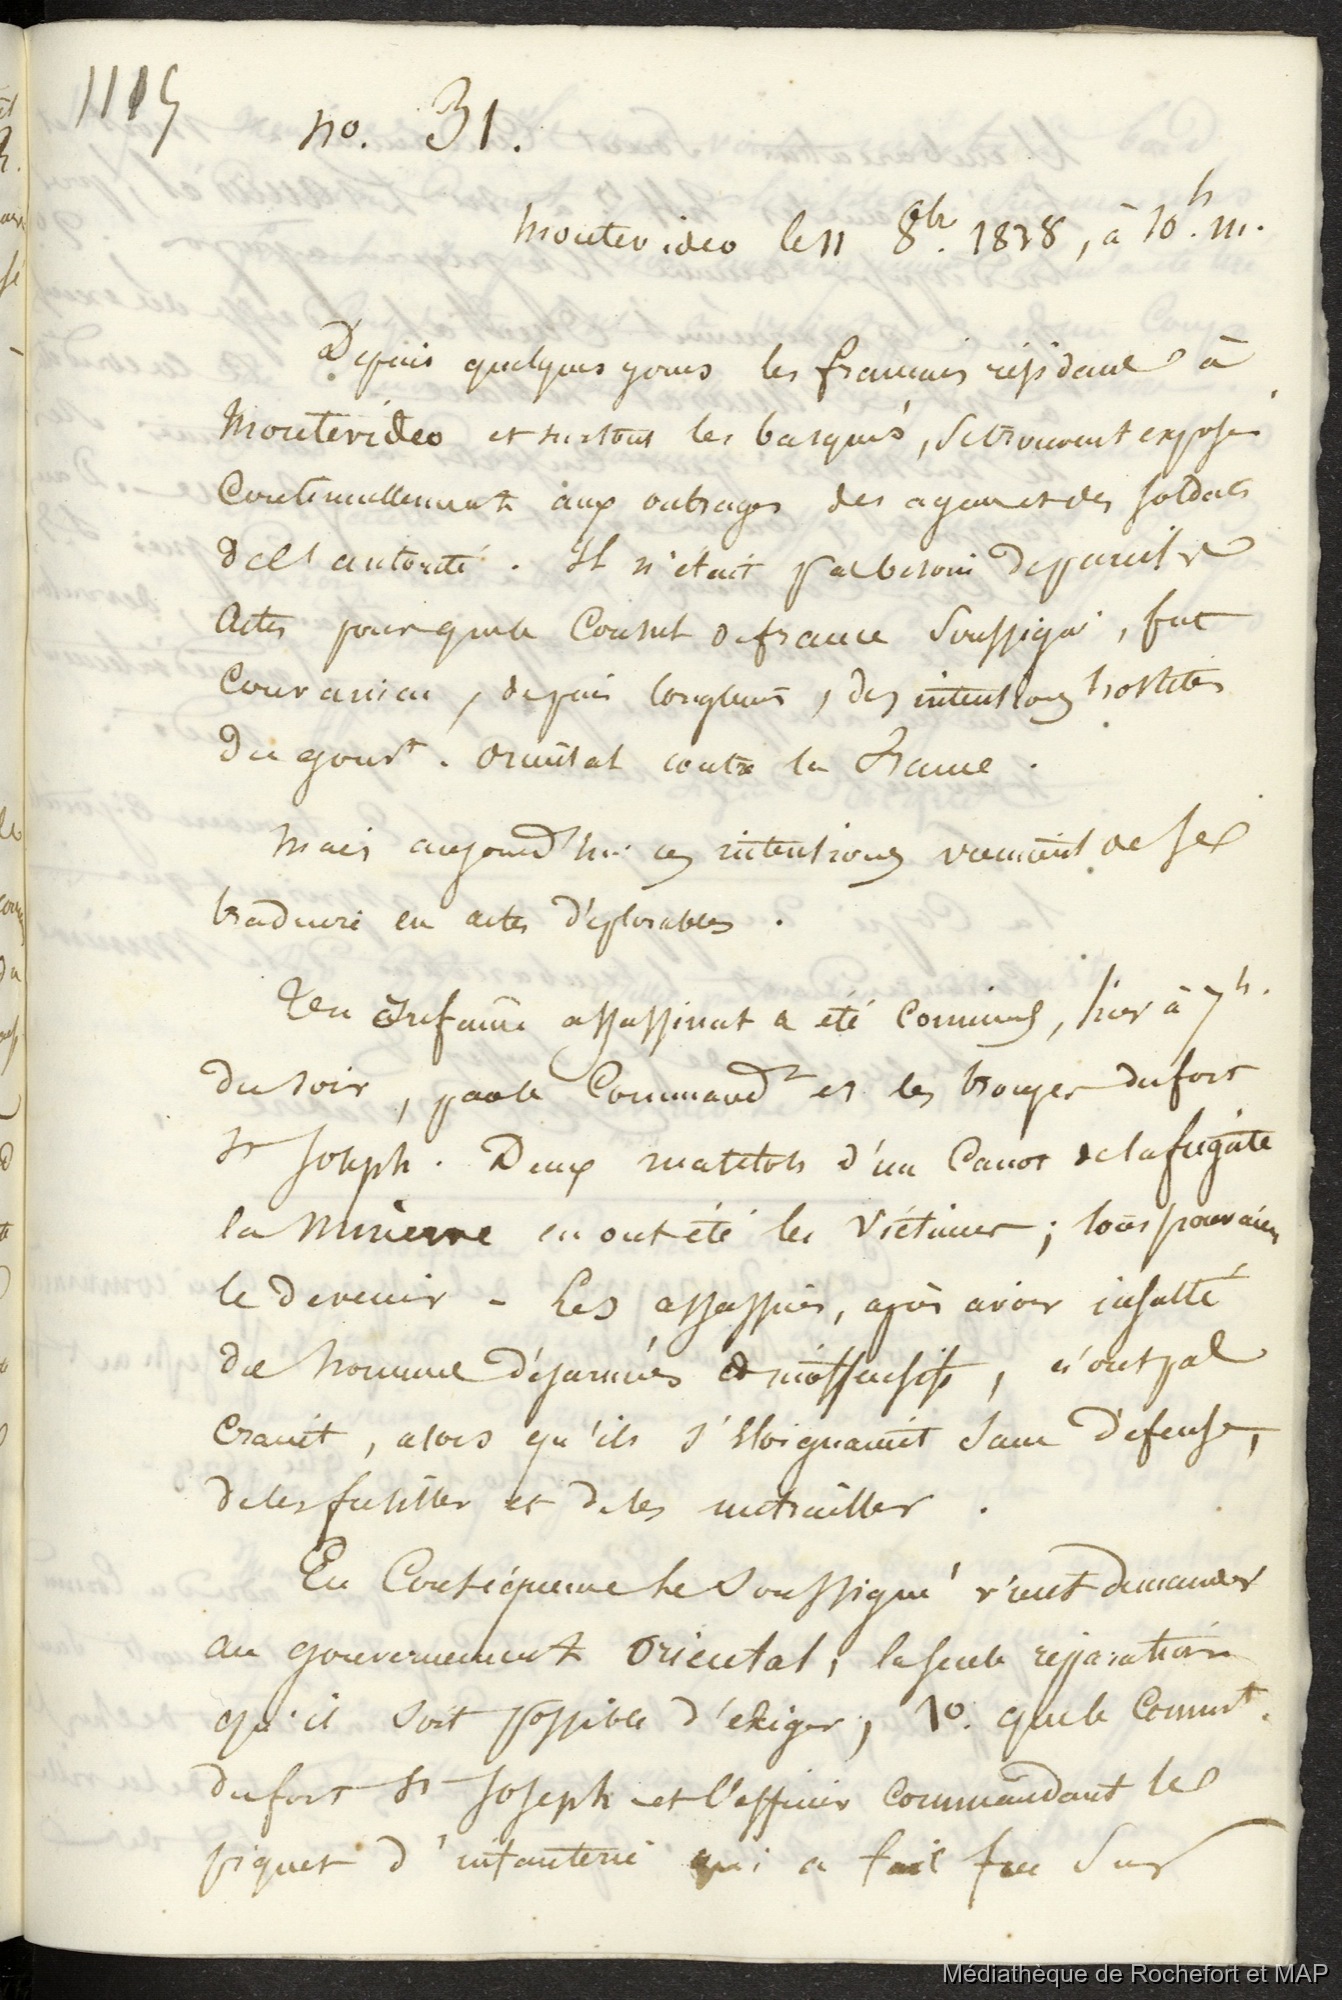 1115
no. 31.
Montevideo le 11 8br. 1838, à 10h. m.
Depuis quelques jours les français résidant à
Montevideo et surtout les basques, se trouvent exposés
Continuellement aux outrages des agens et des soldats
de l'autorité. Il n'était pas besoin de pareils
actes pour que le Consul de france Soussigné, fut
convaincu, depuis longtems, des intentions hostiles
du gouvt. oriental contre la France.
Mais aujourd'hui ces intentions viennent de se
traduire en actes déplorables.
Un infame assassinat a été commis, hier à 7h.
du soir, par le Commandt et les troupes du fort
St Joseph. Deux matelots d'un Canot de la frégate
la Minerve en ont été les victimes; tous pouvaient
le devenir - Les assassins, après avoir insulté
des hommes désarmés et inoffensifs, n'ont pas
craint, alors qu'ils s'éloignaient sans défense,
de les fusiller et de les mitrailler.
En Conséquence le Soussigné vient demander
au gouvernement Oriental, la seule réparation
qu'il soit possible d'exiger; 1o. que le Commt.
du fort St Joseph et l'officier commandant le
piquet d'infanterie qui a fait feu sur
Médiathèque de Rochefort et MAP